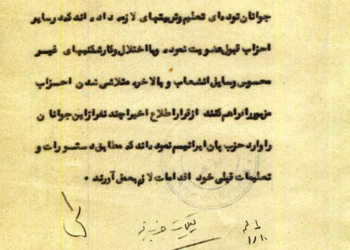 جوانان توده‌ای تعلیم و تربیتهای لازمه داده اند که در سایر
احزاب قبول عضویت نموده وبا اختلال وکارشکنیهای غیر
محسوس وسایل انشعاب و بالاخره متلاشی شدن احزاب
مزبور را فراهم کنند از قرار اطلاع اخیرا چند نفر از این جوانان
را وارد حزب پان ایرانیسم نموده اند که مطابق دستورات و
تعلیمات قبلی خود اقدامات لازم بعمل آورند.